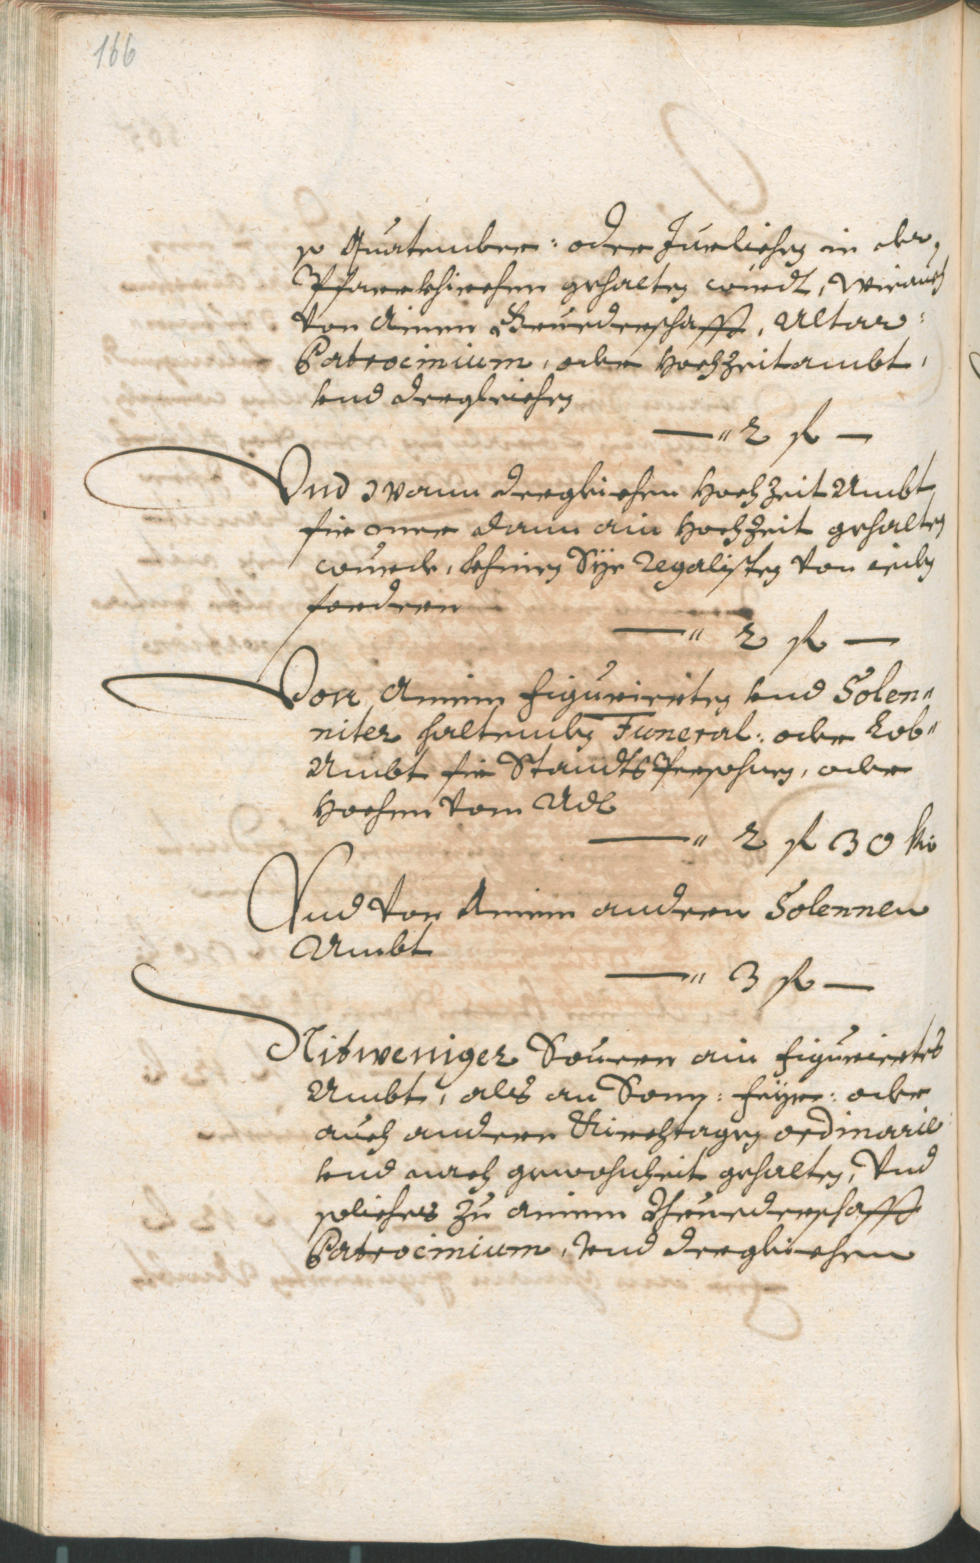 166
so Quatember: oder Järlichen in der
Pfarrkhirchen gehalten würdt, wie auch
von Ainem Bruederschafft, Altar:
Patrocinium, oder Hochzeitambt,
und dergleichen
—" 2 fl —
Und wann dergleichen Hochzeit Ambt
für mer dann ain Hochzeit gehalten
wurde, khinen Sÿe Regalisten von ieden
fordern
—" 2 fl —
Von Ainem figurierten und Solen"
niter haltenden Funeral: oder Lob"
Ambt für StandtsPersohnen, oder
Hochen vom Adl
—" 2 fl 30 kr
Und von Ainem andern Solennen
Ambt
—" 3 fl —
Nitweniger Souern ain figuriertes
Ambt, als an Sonn: feÿr: oder
auch andern Kirchtagen ordinarie
und nach gewohnheit gehalten, Und
solches zu ainem Bruederschafft
Patrocinium, und dergleichen